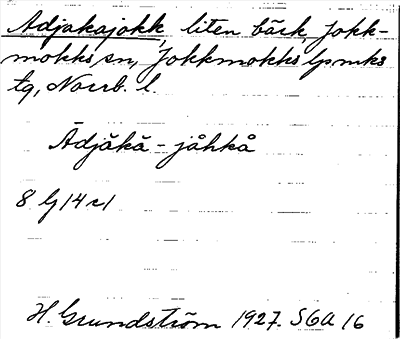 Adjakajokk, liten bäck, Jokk-
mokks sn, Jokkmokks lpmks
tg, Norrb. l.
Ādjăkă - jåhkå
8 G 14 c/
H. Grundström 1927. SGA 16